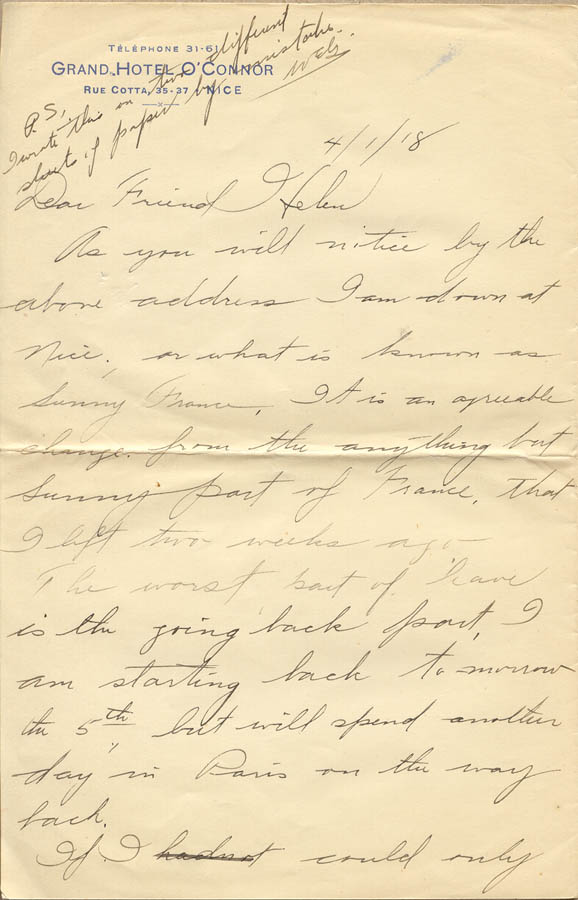 TÉLÉPHONE 31-61
GRAND HOTEL O'CONNOR
RUE COTTA, 35-37 NICE
P.S.
I wrote this on two different
sheets of paper by mistake.
4/1/18
Dear Friend Helen
As you will notice by the
above address I am down at
Nice, or what is known as
Sunny France, It is an agreeable
change. from the anything but
Sunny part of France, that
I left two weeks ago
The worst part of leave
is the going back part, I
am starting back to-morrow
the 5th, but will spend another
day in Paris on the way
back.
If I hadnot could only